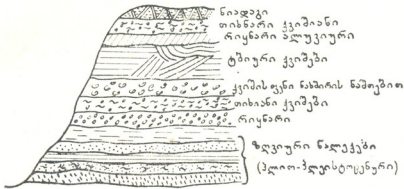 ნიადაგი
თიხნარი ქვიშიანი
რიყნარი ალუვიური
ტბიური ქვიშები
ქვიშის ფენი ნახშირის ნაშთებით
თიხიანი ქვიშები
რიყნარი
ზღვიური ნალექები
(პლიო-პლეისტოცენური)